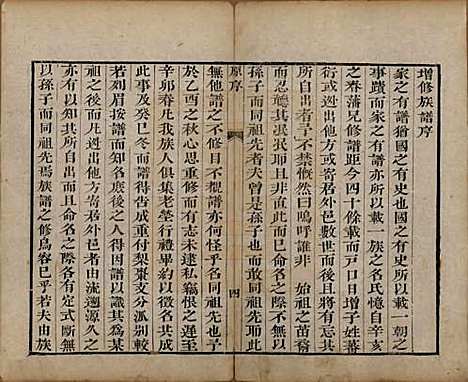 增修族譜序
家之有譜猶國之有史也國之有史所以載一朝之
事蹟而家之有譜亦所以載一族之名氏憶自辛卯
之齊藩兄修譜距今四十餘載而戶口日增子姓蕃
衍或遷出他方或寄居外邑數世而後有相遇而不知
所自出者予不禁愀然曰嗚呼誰非祖宗之苗裔
而忍聽其泯泯耶且非直此而已命名之際不無以
孫子而同祖先者夫曾是孫子也而敢同祖先耶此
原序
四
無他譜之不修目不覩譜亦何怪乎名同祖先也予
於乙酉之秋心思重修而有志未逮私竊恨之遲至
辛卯春凡我族人俱集老塋行禮畢約以徵名共成
此事迄癸巳冬而譜得告成重付梨棗支分派別行行
若列眉按譜而知各庶後之人得因譜以識其為某
祖之後而凡遷出他方寄居外邑者由流遡源久之
亦有以知所自出而且命名之際各有定式斷不至
以孫子而同祖先焉族譜之修烏容已乎若夫由族